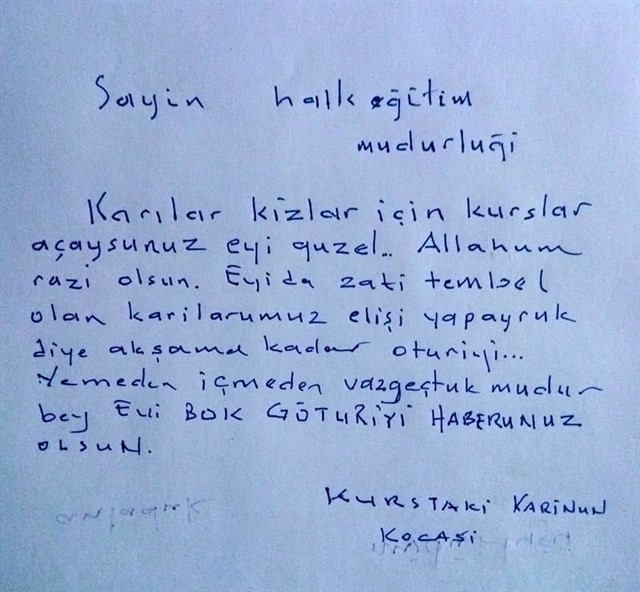 Sayin halk eğitim
mudurluği
Karılar kizlar için kurslar
açaysunuz eyi guzel.. Allahum
razi olsun. Eyida zati tembel
olan karilarumuz elişi yapayruk
diye akşama kadar oturiyi...
Yemeden içmeden vazgeçtuk mudur
bey Evi BOK GÖTURİYİ HABERUNUZ
OLSUN.
KURSTAKİ KARİNUN
KOCASİ